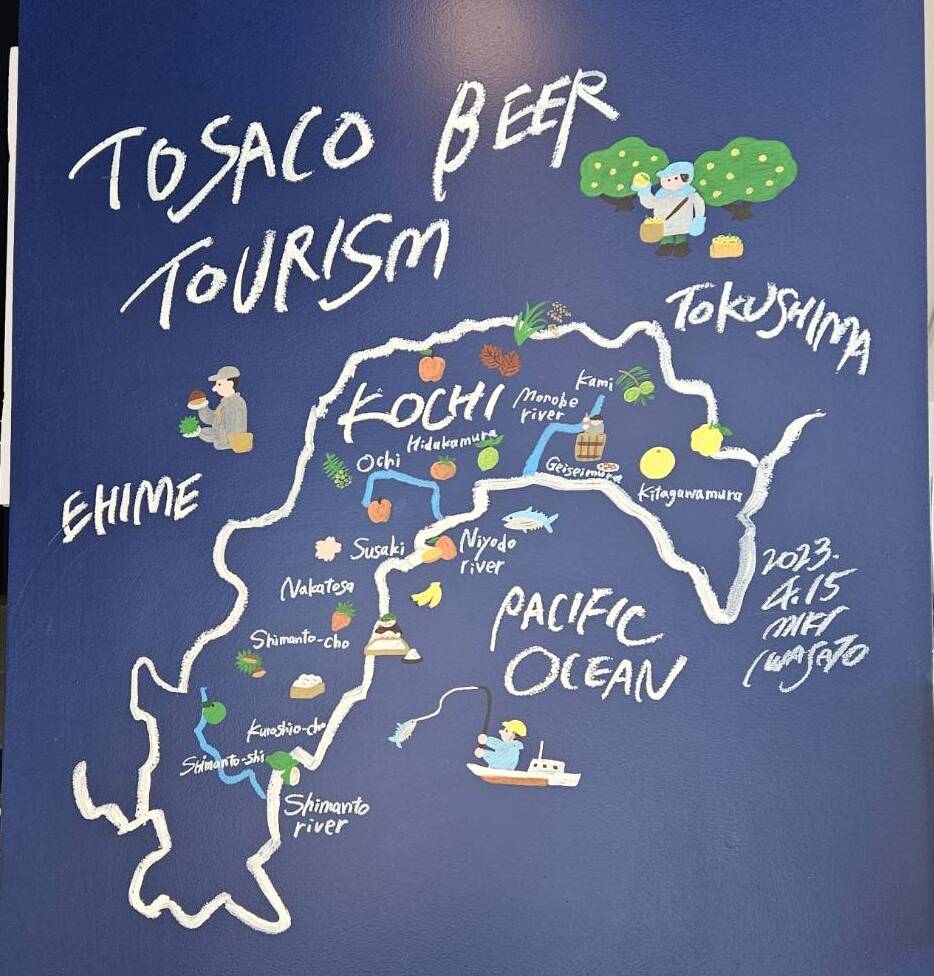 TOSACO BEER
TOURISM
TOKUSHIMA
KOCHI
Kami
Monobe
river
Hidakamura
Ochi
Geiseimura
Kitagawamura
EHIME
Susaki
Niyodo
river
Nakatosa
PACIFIC
OCEAN
2023.
4.15
MIKI
IWASATO
Shimanto-cho
Kuroshio-cho
Shimanto-shi
Shimanto
river